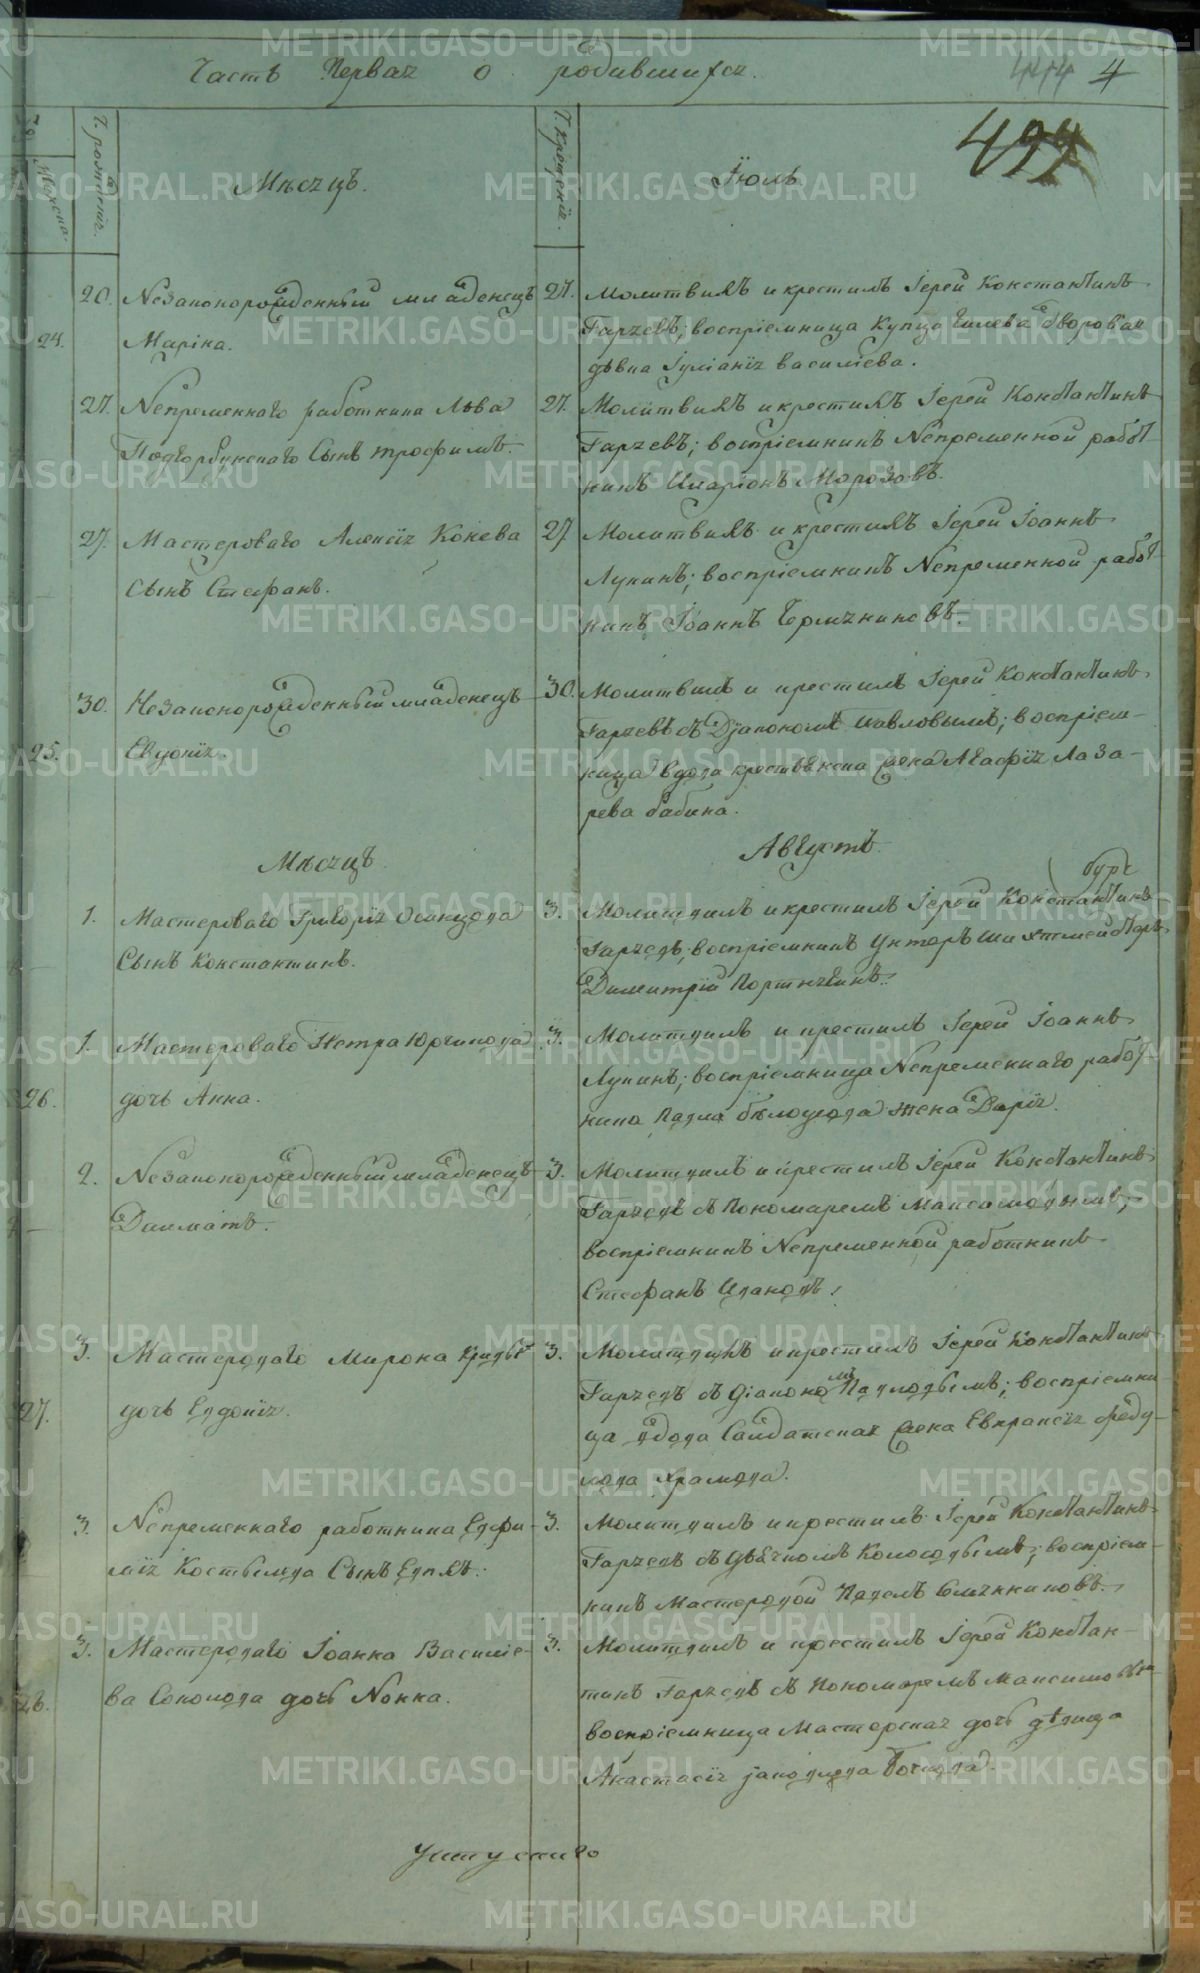 Часть Первая о родившихся.
4
Ч. рождения.
Ч. крещения.
Женска.
Мѣсяцъ.
Іюль
20. Незаконорожденный младенецъ
24. Марина.
27. Молитвилъ и крестилъ Іерей Константинъ
Гаряевъ; воспріемница Купца дворовая
дѣвка Іуліанія Василіева.
27. Непременнаго работника Льва
Подгорбунскаго Сынъ Трофимъ.
27. Молитвилъ и крестилъ Іерей Константинъ
Гаряевъ; воспріемникъ Непременной работ-
никъ Иларіонъ Морозовъ.
27. Мастероваго Алексія Конева
Сынъ Стефанъ.
27 Молитвилъ и крестилъ Іерей Іоаннъ
Лукинъ; воспріемникъ Непременной работ-
никъ Іоаннъ Чермяниновъ.
30. Незаконорожденный младенецъ
25. Евдокія.
30. Молитвилъ и крестилъ Іерей Константинъ
Гаряевъ съ Діакономъ Павловымъ; воспріем-
ница вдова крестьянска жена Агафія Лаза-
рева бабина.
Мѣсяцъ
Августъ
1. Мастероваго Григорія Осинцова
Сынъ Константинъ.
3. Молитвилъ и крестилъ Іерей Константинъ
Гаряевъ; воспріемникъ Унтеръ Шихтмейстеръ
Димитрій Портнягинъ.
1. Мастероваго Петра Юрчикова
26. дочь Анна.
3. Молитвилъ и крестилъ Іерей Іоаннъ
Лукинъ; воспріемница Непременнаго работ-
ника Павла Бѣлоусова жена Дарія.
2. Незаконорожденный младенецъ
Далматъ.
3. Молитвилъ и крестилъ Іерей Константинъ
Гаряевъ съ Пономаремъ Максимовымъ;
воспріемникъ Непременной работникъ
Стефанъ Ивановъ.
3. Мастероваго Мирона
27. дочь Евдокія.
3. Молитвилъ и крестилъ Іерей Константинъ
Гаряевъ съ Діакономъ Павловымъ; воспріемни-
ца вдова Салдатская жена Евпраксія Феду-
лова Храмова.
3. Непременнаго работника Евфи-
мія Костылева Сынъ Евплъ.
3. Молитвилъ и крестилъ Іерей Константинъ
Гаряевъ съ Дьячкомъ Колосовымъ; воспріем-
никъ Мастеровой Павелъ
3. Мастероваго Іоанна Василіе-
28. ва Соколова дочь Нонна.
3. Молитвилъ и крестилъ Іерей Констан-
тинъ Гаряевъ съ Пономаремъ Максимовымъ
воспріемница Мастерская дочь дѣвица
Анастасія Іаковлева
METRIKI.GASO-URAL.RU